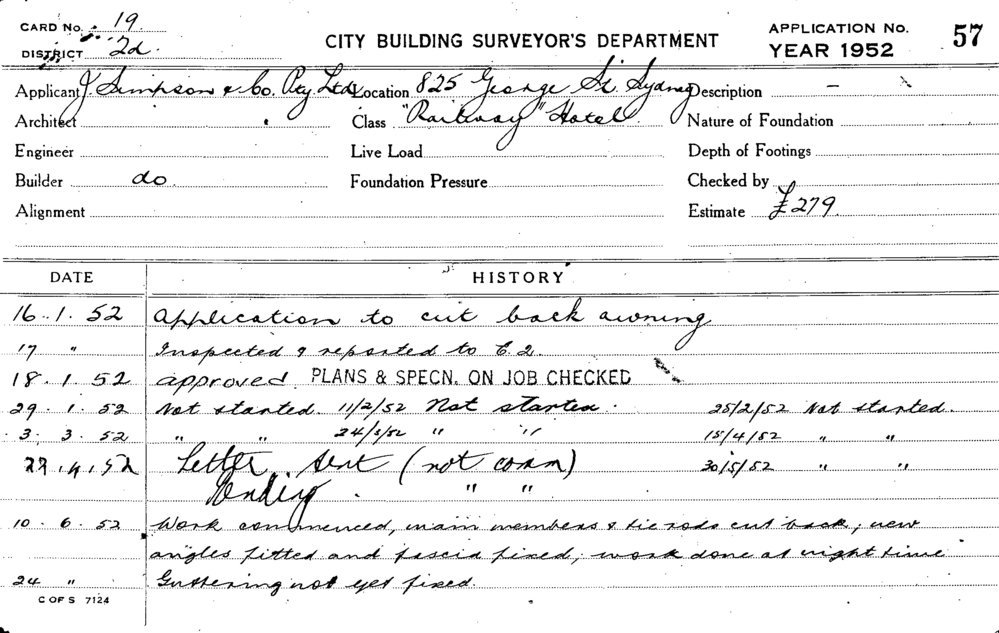 CARD No. 19
DISTRICT 2d.
CITY BUILDING SURVEYOR'S DEPARTMENT
APPLICATION No. 57
YEAR 1952
Applicant J Simpson & Co. Pty Ltd Location 825 George St. Sydney Description —
Architect Class "Railway" Hotel Nature of Foundation
Engineer Live Load Depth of Footings
Builder do. Foundation Pressure Checked by
Alignment Estimate £279.
DATE HISTORY
16.1.52 Application to cut back awning
17 " Inspected & reported to C.2.
18.1.52 approved. PLANS & SPECN. ON JOB CHECKED
29.1.52 Not started. 11/2/52 Not started. 25/2/52 Not started.
3.3.52 " " 24/3/52 " " 15/4/52 " "
29.4.52 Letter sent (not comm) 30/5/52 " "
Pending " "
10.6.52 Work commenced, main members & tie rods cut back, new
angles fitted and fascia fixed, work done at night time
24 " Guttering not yet fixed.
C OF S 7124